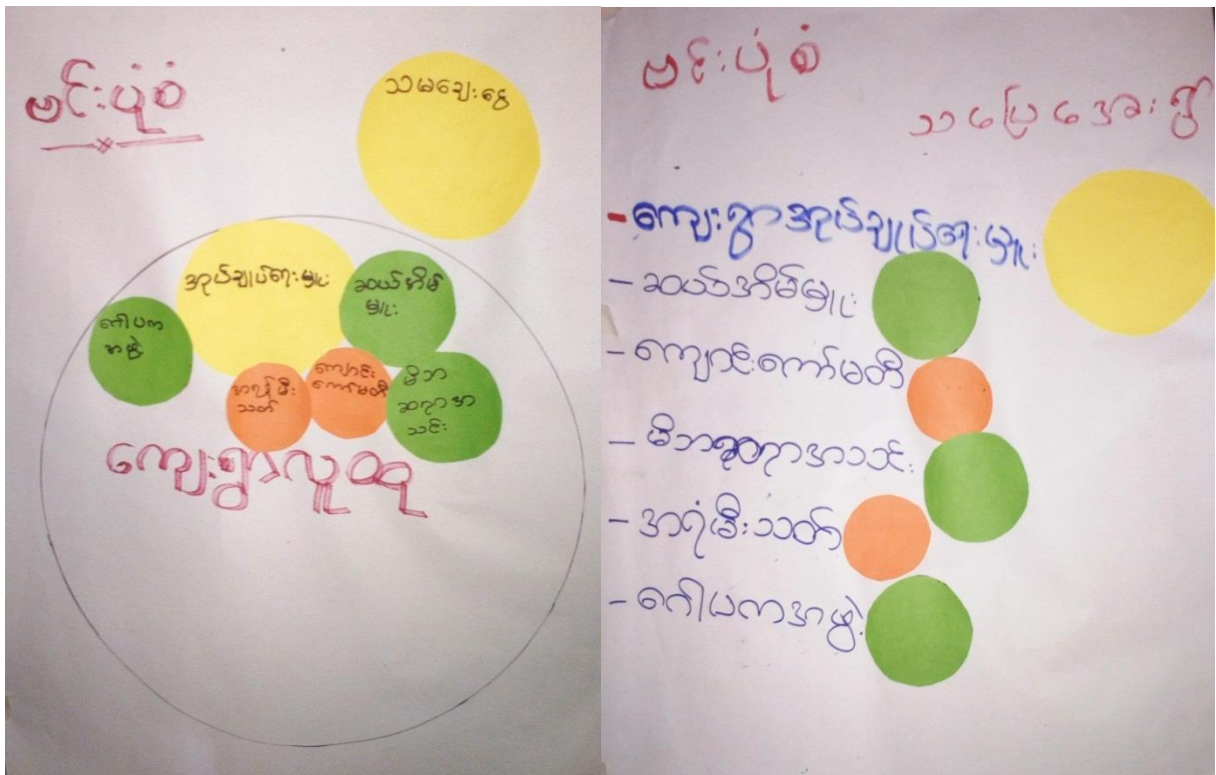 ဗင်းပုံစံ
သမချေးငွေ
အုပ်ချုပ်ရေးမှူး
ဆယ်အိမ်
မှူး
ဂေါပက
အဖွဲ့
အရန်မီး
သတ်
ကျောင်း
ကော်မတီ
မိဘ
ဆရာအ
သင်း
ကျေးရွာလူထု
ဗင်းပုံစံ
သပြေအေးရွာ
- ကျေးရွာအုပ်ချုပ်ရေးမှူး
- ဆယ်အိမ်မှူး
- ကျောင်းကော်မတီ
- မိဘဆရာအသင်း
- အရံမီးသတ်
- ဂေါပကအဖွဲ့